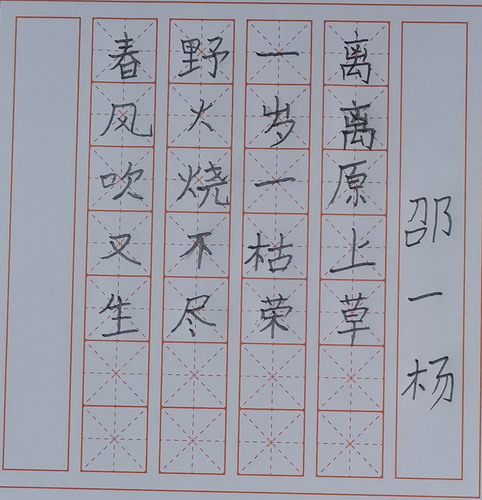 邵一杨
离离原上草
一岁一枯荣
野火烧不尽
春风吹又生